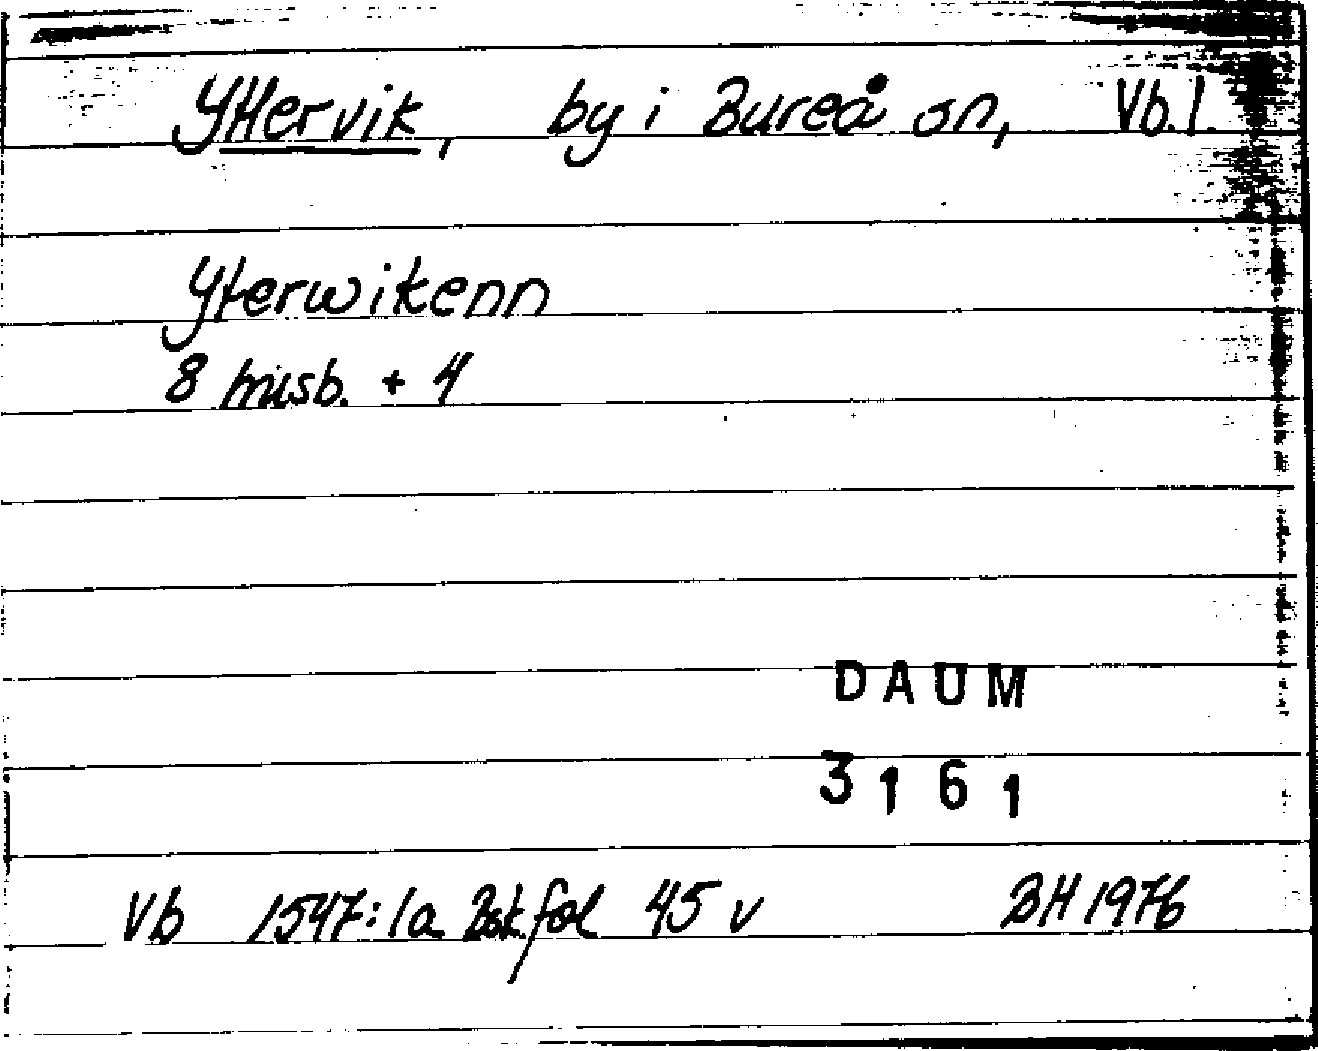 Yttervik, by i Bureå sn, Vb. l.
Yterwikenn
8 misb. + 4
DAUM
3161
Vb 1547:1a Bsk fol 45 v BH 1976